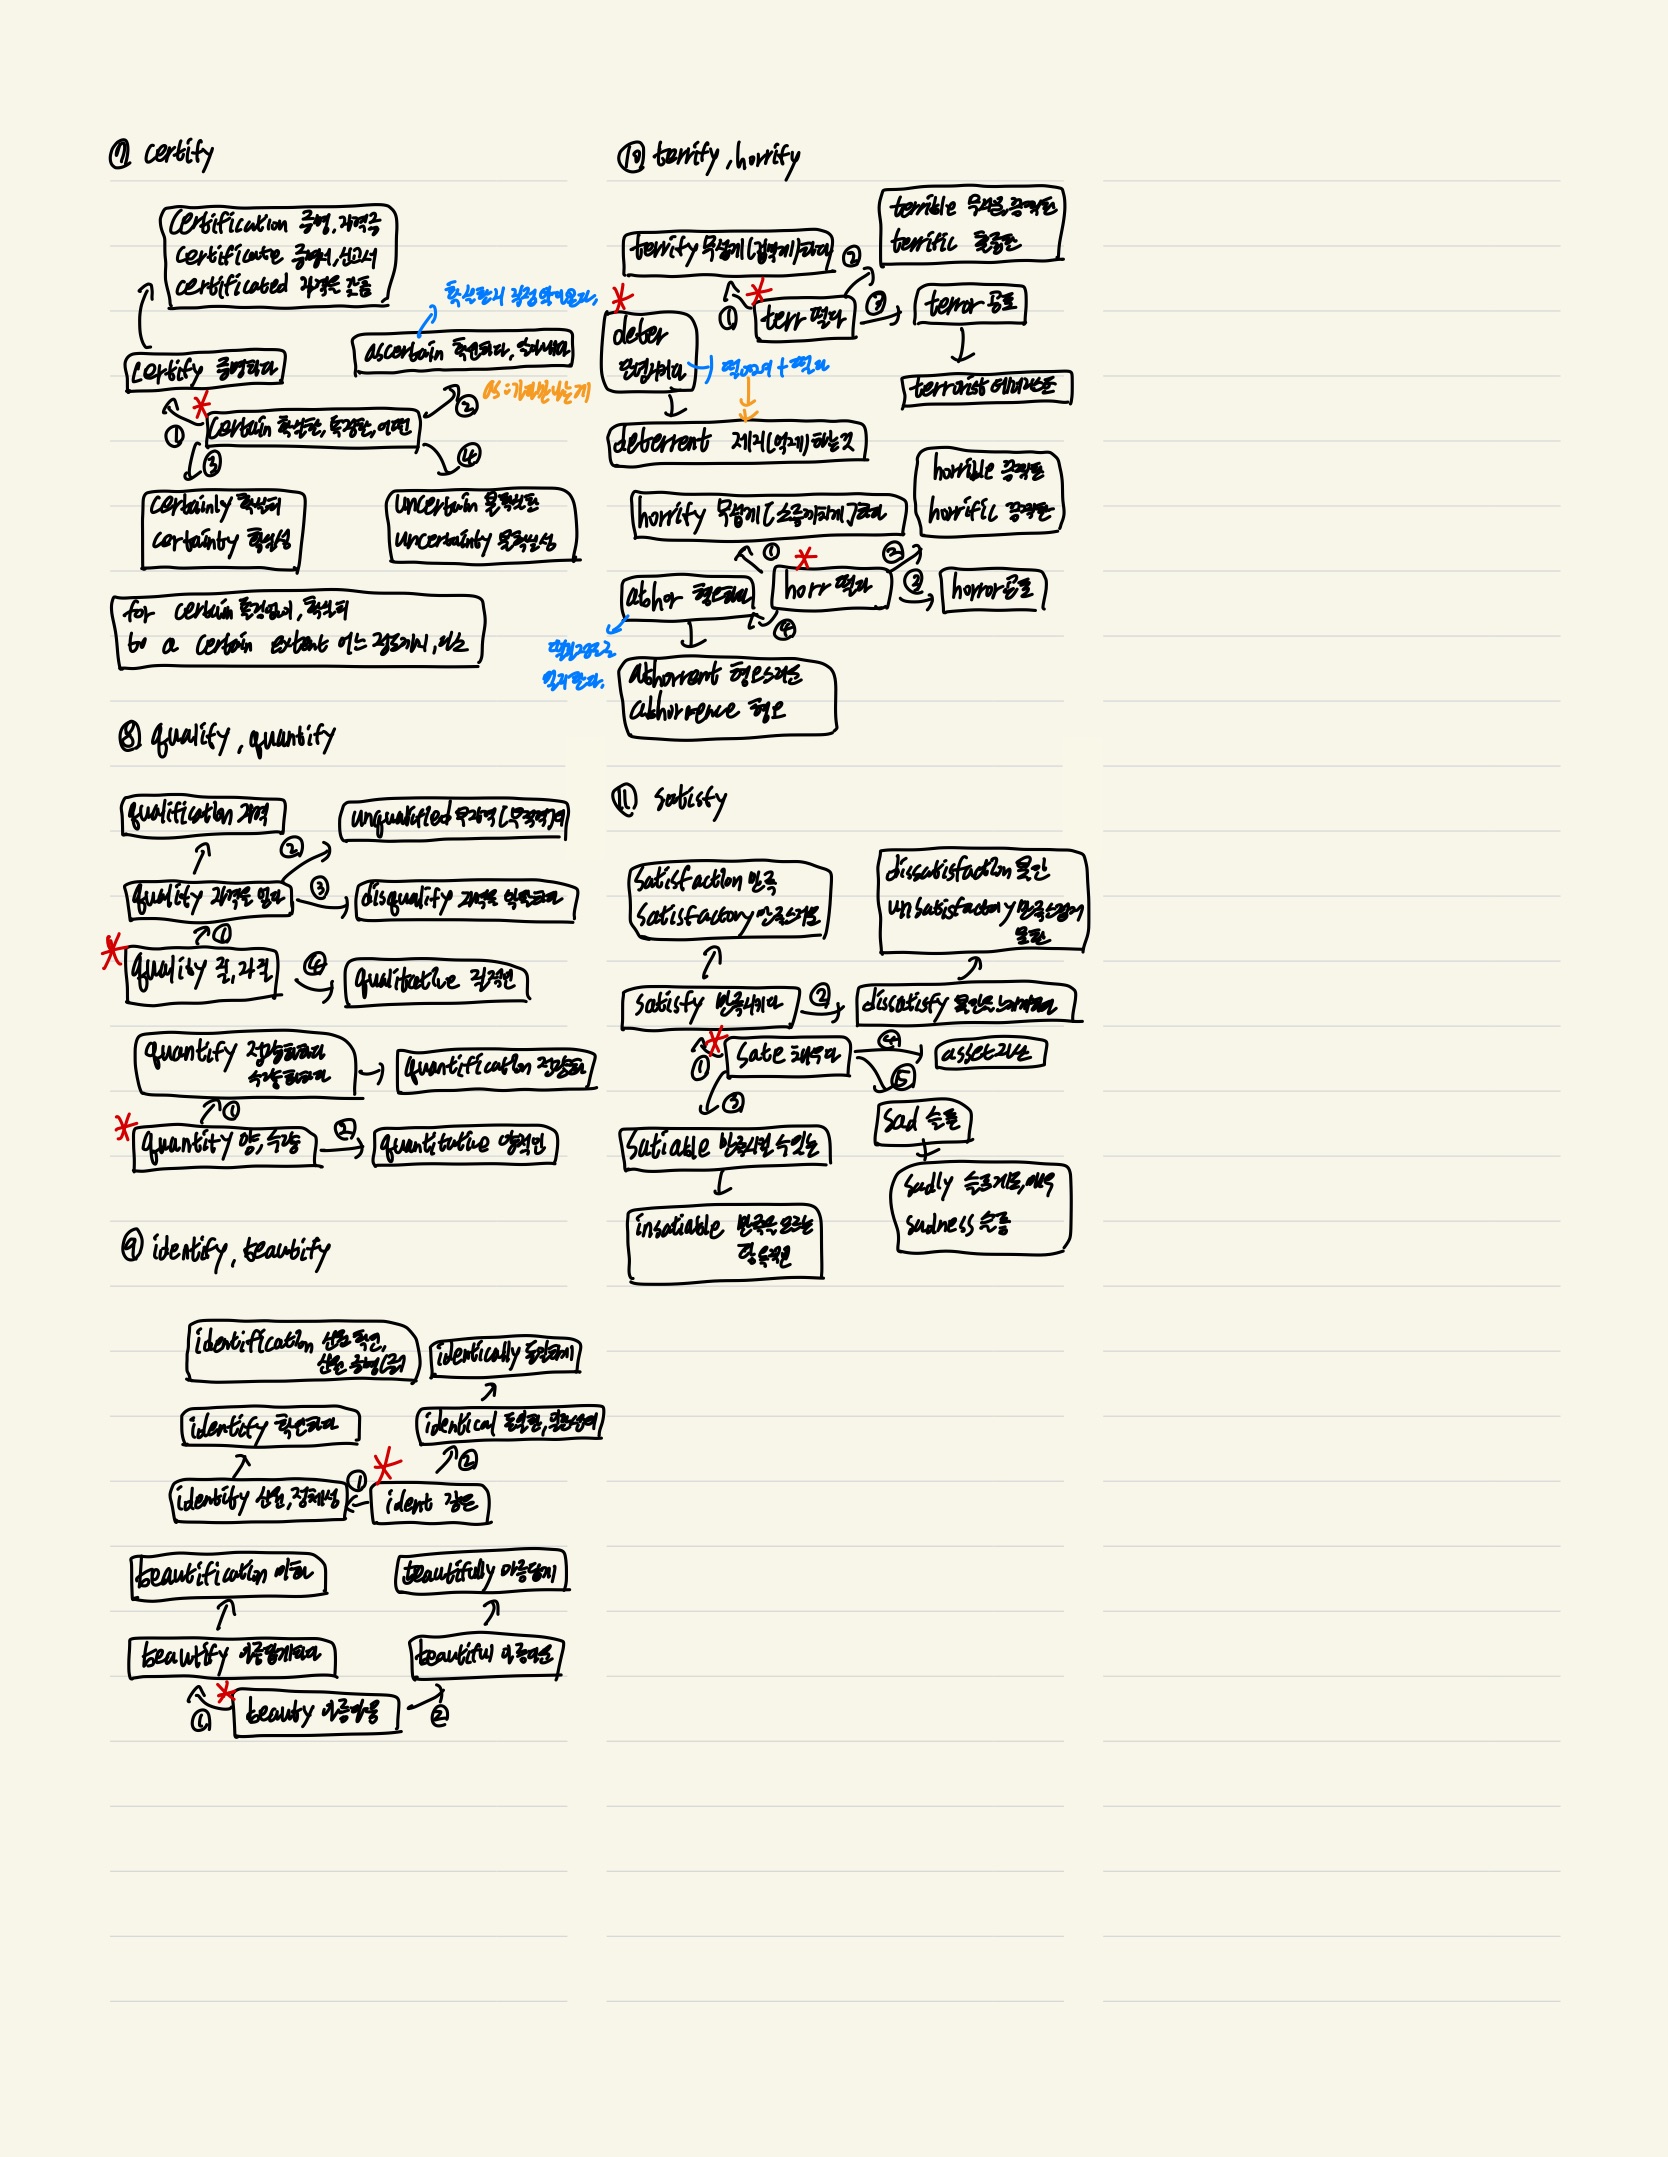 ⑦ certify
certification 증명, 자격증
certificate 증명서, 선고서
certificated 자격을 갖춤
certify 증명하다
ascertain 확인하다, 알아내다
as :
② 
certain 확실한, 특정한, 어떤
①
③
④
certainly 확실히
certainty 확실성
uncertain 불확실한
uncertainty 불확실성
for certain 틀림없이, 확실히
to a certain extent 어느 정도까지, 다소
⑧ qualify, quantify
qualification 자격
unqualified 무자격(무제한)의
②
qualify 자격을 얻다
③
disqualify 자격을 박탈하다
①
quality 질, 자질
④
qualitative 질적인
quantify 정량화하다
수량화하다
quantification 정량화
①
quantity 양, 수량
②
quantitative 양적인
⑨ identify, beautify
identification 신원 확인,
신원 증명(서)
identically 동일하게
identify 확인하다
identical 동일한,
②
identity 신원, 정체성
①
ident 같은
beautification 미화
beautifully 아름답게
beautify 아름답게하다
beautiful 아름다운
①
beauty 아름다움
②
⑩ terrify, horrify
terrible 무서운, 끔찍한
terrific 훌륭한
terrify 무섭게(겁먹게)하다
②
①
terr 떨다
③
terror 공포
deter
단념시키다
떨어져 + 떨다
terrorist 테러리스트
deterrent 제지(억제)하는것
horrible 끔찍한
horrific 끔찍한
horrify 무섭게[소름끼치게]하다
①
②
abhor 혐오하다
horr 떨다
②
horror 공포
④
떨 정도로
싫어한다.
abhorrent 혐오스러운
abhorrence 혐오
⑪ satisfy
satisfaction 만족
satisfactory 만족스러운
dissatisfaction 불만
unsatisfactory 만족스럽지
못한
satisfy 만족시키다
②
dissatisfy 불만을 느끼게하다
①
sate 채우다
④
asset 자산
⑤
③
sad 슬픈
satiable 만족시킬 수있는
sadly 슬프게도, 애석
sadness 슬픔
insatiable 만족을 모르는
탐욕적인